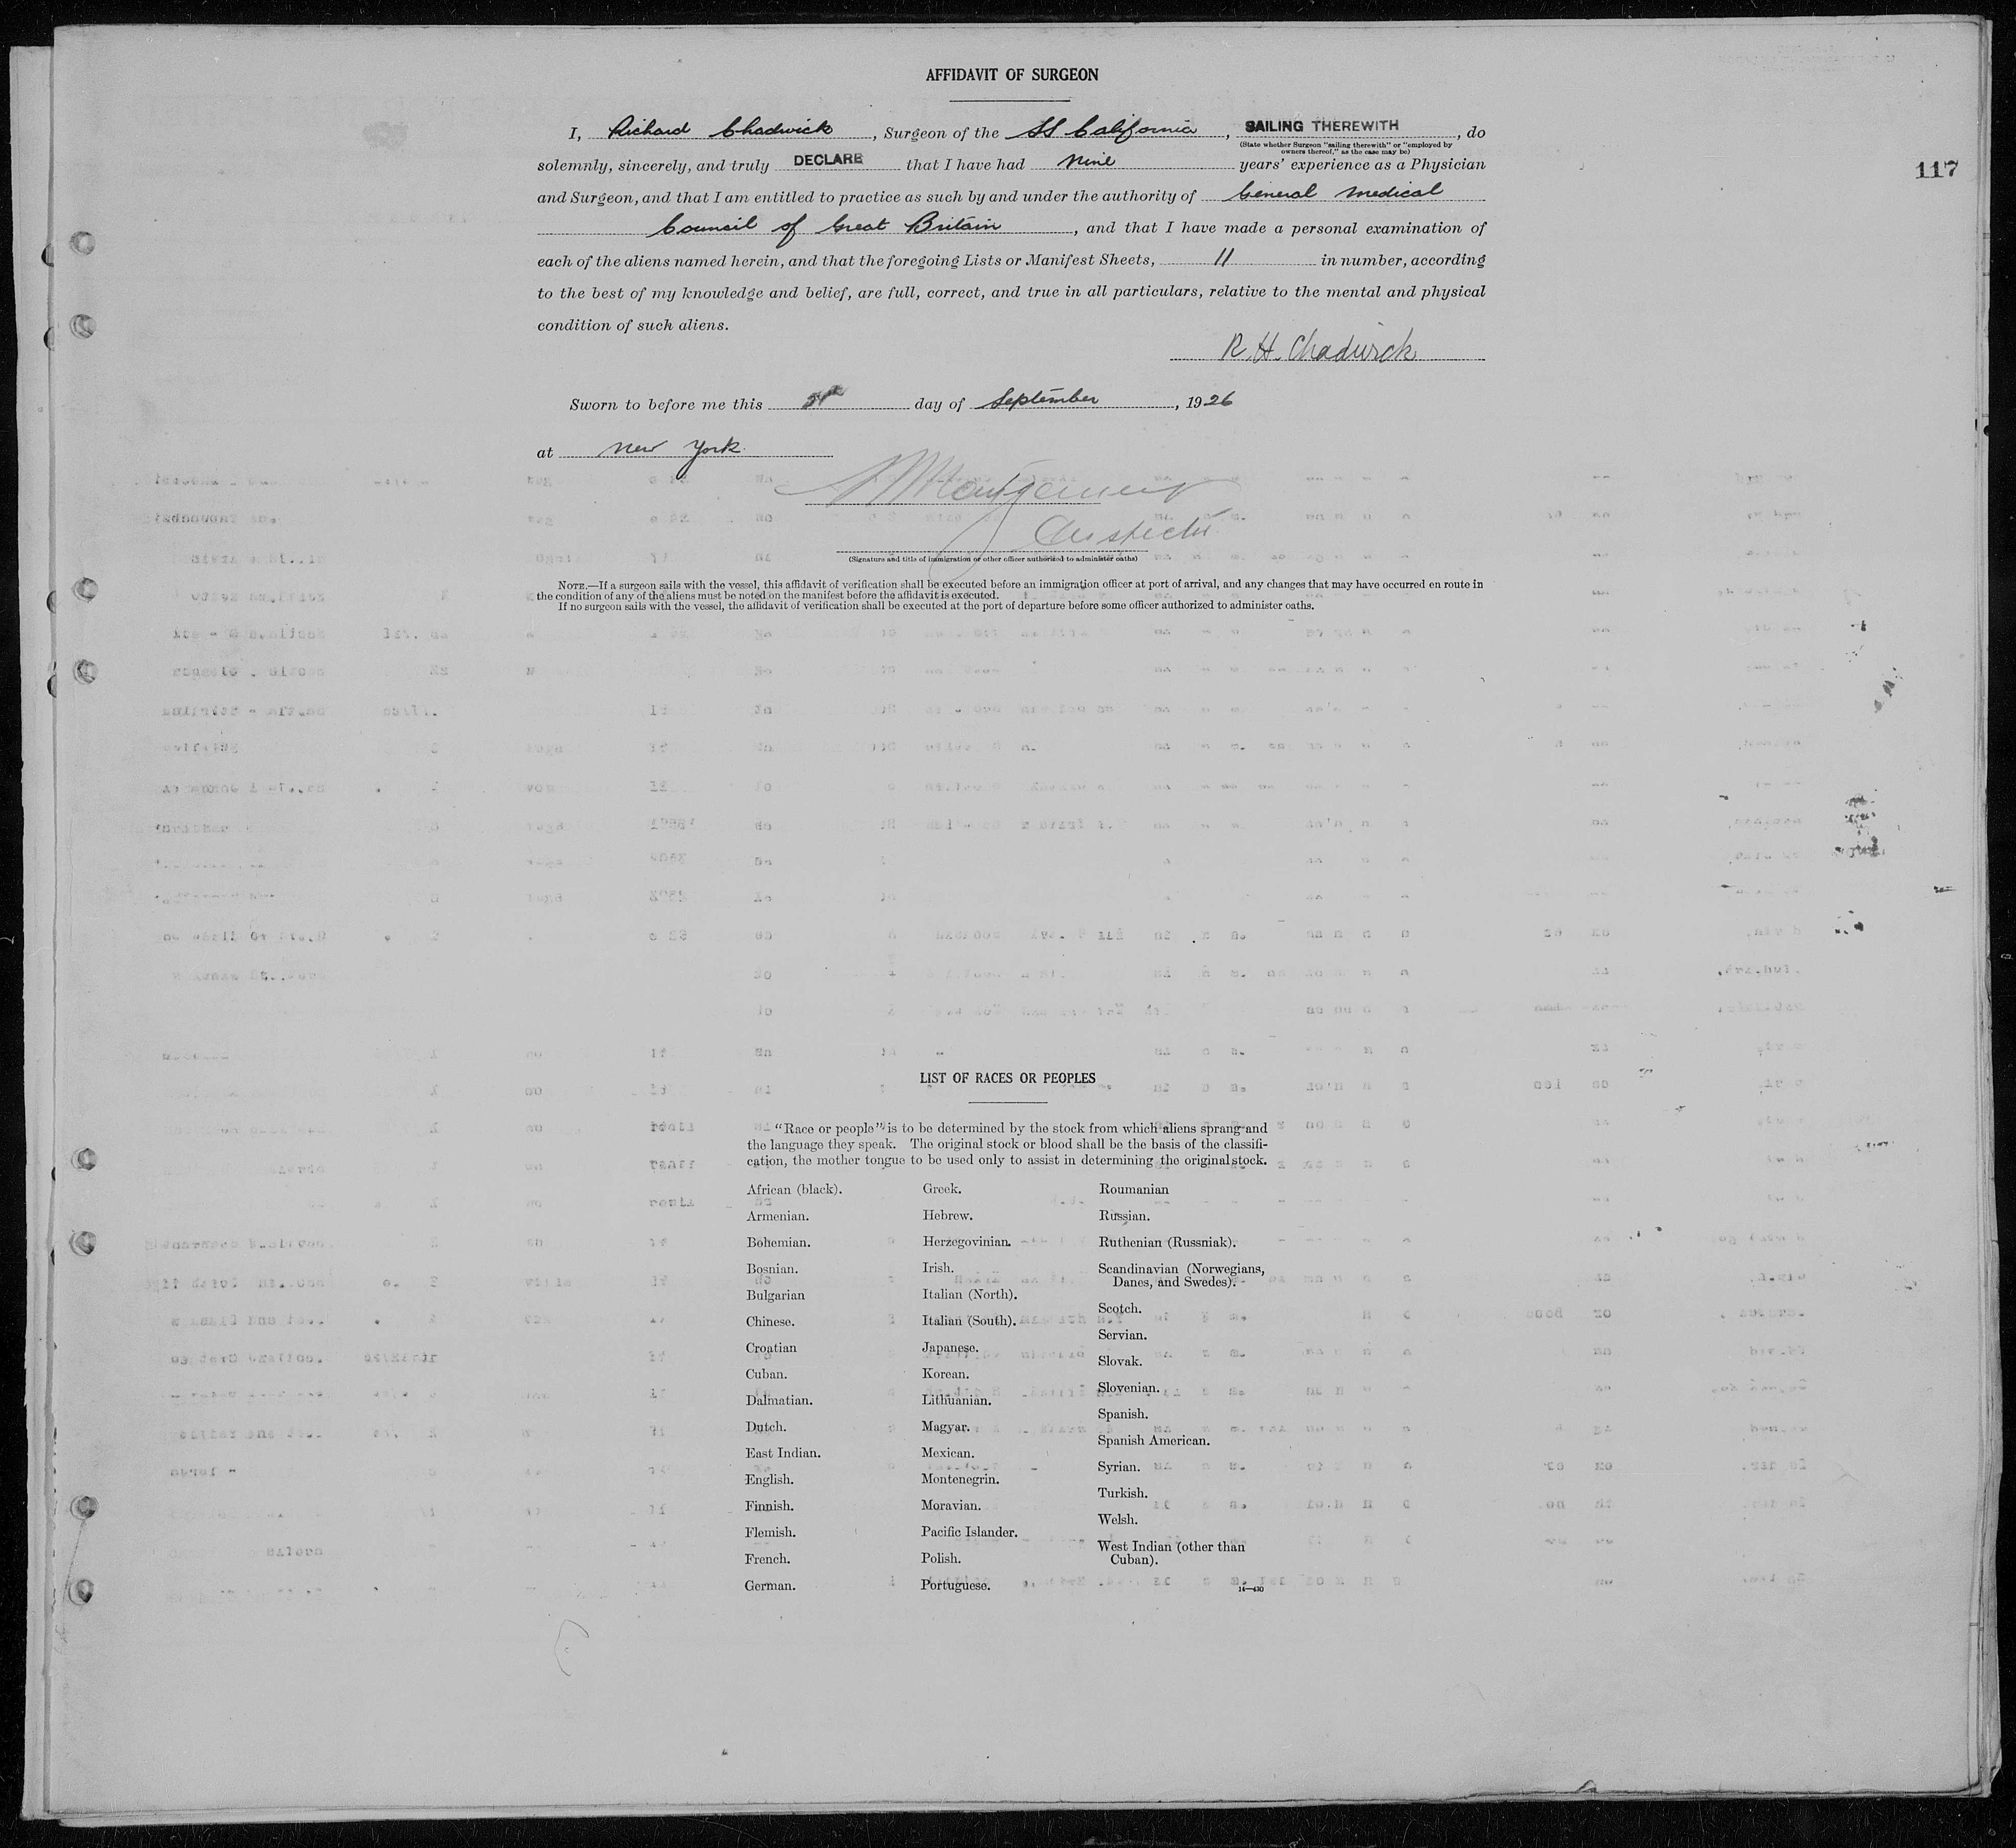 AFFIDAVIT OF SURGEON
I, Richard Chadwick, Surgeon of the SS California, SAILING THEREWITH, do
(State whether Surgeon "sailing therewith" or "employed by
owners thereof," as the case may be)
solemnly, sincerely, and truly DECLARE that I have had nine years' experience as a Physician
117
and Surgeon, and that I am entitled to practice as such by and under the authority of General Medical
Council of Great Britain, and that I have made a personal examination of
each of the aliens named herein, and that the foregoing Lists or Manifest Sheets, 11 in number, according
to the best of my knowledge and belief, are full, correct, and true in all particulars, relative to the mental and physical
condition of such aliens.
R. H. Chadwick
Sworn to before me this day of September, 1926
at New York
Montgomery
(Signature and title of immigration or other officer authorized to administer oaths)
NOTE.—If a surgeon sails with the vessel, this affidavit of verification shall be executed before an immigration officer at port of arrival, and any changes that may have occurred en route in
the condition of any of the aliens must be noted on the manifest before the affidavit is executed.
If no surgeon sails with the vessel, the affidavit of verification shall be executed at the port of departure before some officer authorized to administer oaths.
LIST OF RACES OR PEOPLES
"Race or people" is to be determined by the stock from which aliens sprang and
the language they speak. The original stock or blood shall be the basis of the classifi-
cation, the mother tongue to be used only to assist in determining the original stock.
African (black).
Armenian.
Bohemian.
Bosnian.
Bulgarian
Chinese.
Croatian
Cuban.
Dalmatian.
Dutch.
East Indian.
English.
Finnish.
Flemish.
French.
German.
Greek.
Hebrew.
Herzegovinian.
Irish.
Italian (North).
Italian (South).
Japanese.
Korean.
Lithuanian.
Magyar.
Mexican.
Montenegrin.
Moravian.
Pacific Islander.
Polish.
Portuguese.
Roumanian
Russian.
Ruthenian (Russniak).
Scandinavian (Norwegians,
Danes, and Swedes).
Scotch.
Servian.
Slovak.
Slovenian.
Spanish.
Spanish American.
Syrian.
Turkish.
Welsh.
West Indian (other than
Cuban).
14—430